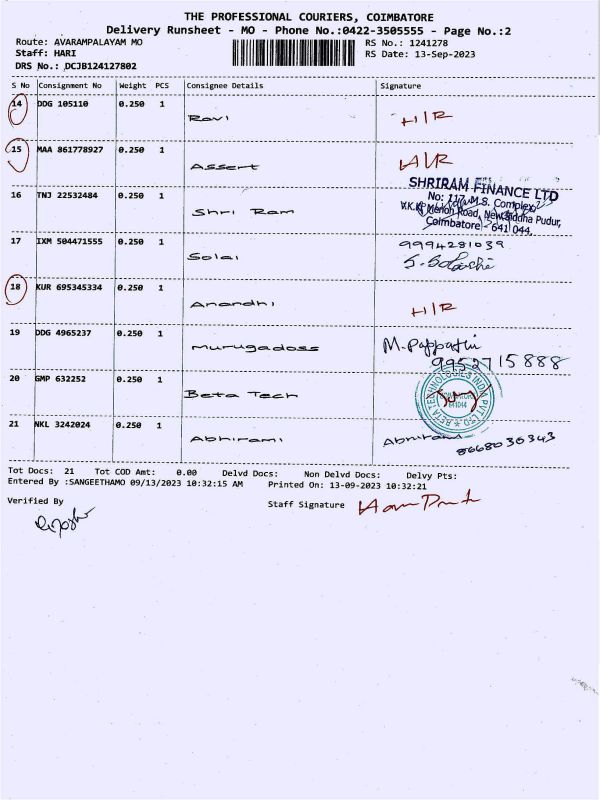 THE PROFESSIONAL COURIERS, COIMBATORE
Delivery Runsheet - MO - Phone No.:0422-3505555 - Page No.:2
Route: AVARAMPALAYAM MO RS No.: 1241278
Staff: HARI RS Date: 13-Sep-2023
DRS No.: DCJB124127802
S No Consignment No Weight PCS Consignee Details Signature
14 DDG 105110 0.250 1
Ravi H/R
15 MAA 861778927 0.250 1
Assert A/R
SHRIRAM FINANCE LTD
16 TNJ 22532484 0.250 1 No: 117, M.S. Complex,
Shri Ram V.K.K. Menon Road, New Siddha Pudur,
Coimbatore - 641 044.
17 IXM 504471555 0.250 1 9994281039
Solai
18 KUR 695345334 0.250 1
Anandhi H/R
19 DDG 4965237 0.250 1 M. Pappathi
Murugadoss 9952715888
20 GMP 632252 0.250 1
Beta Tech BETA TECHNOLOGIES INDIA PVT LTD
641044
21 NKL 3242024 0.250 1
Abhirami Abhirami 8668030343
Tot Docs: 21 Tot COD Amt: 0.00 Delvd Docs: Non Delvd Docs: Delvy Pts:
Entered By :SANGEETHAMO 09/13/2023 10:32:15 AM Printed On: 13-09-2023 10:32:21
Verified By Staff Signature